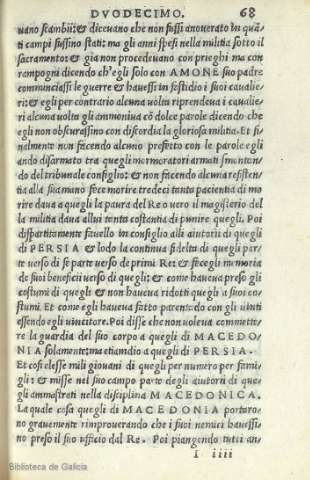 DVODECIMO. 68
uano scambii: & diceuano che non fussi anouerato in quã
ti campi fussino stati: ma gli anni spesi nella militia sotto il
sacramento: & gia non procedeuano con prieghi ma con
rampogni dicendo ch'egli solo con AMONE suo padre
cominciassi le guerre & hauessi in fastidio i suoi caualie
ri: & egli per contrario alcuna uolta riprendeua i caualie
ri alcuna uolta gli ammoniua cõ dolce parole dicendo che
egli non obscurassino con discordia la gloriosa militia. Et fi
nalmente non facendo alcuno profetto con le parole egli
ando disarmato tra quegli mormoratori armati smonton
do del tribunale consiglio: & non facendo alcuna resisten
tia alla sua mano fece morire tredeci tanta pacientia di mo
rire daua a quegli la paura del Re o uero il magisterio del
la militia daua a llui tanta costantia di punire quegli. Poi
dispartitamente fauello in consiglio alli aiutorii di quegli
di PERSIA & lodo la continua fidelta di quegli par
te uerso di se parte uerso de primi Re: & fecegli memoria
de suoi beneficii uerso di quegli: & come haueua preso gli
costumi di quegli & non haueua ridotti quegli a suoi co
stumi. Et come egli haueua fatto parentado con gli uinti
essendo egli uincitore. Poi disse che non uoleua commette
re la guardia del suo corpo a quegli di MACEDO-
NIA solamente: ma etiamdio a quegli di PERSIA.
Et cosi elesse mili giouani di quegli per numero per fami
gli: & misse nel suo campo parte degli aiutori di que
gli ammastrati nella disciplina MACEDONICA.
La quale cosa quegli di MACEDONIA portaro-
no grauemente rimprouerando che i suoi nemici hauessi-
no preso il suo ufficio dal Re. Poi piangendo tutti an-
I iiii
Biblioteca de Galicia